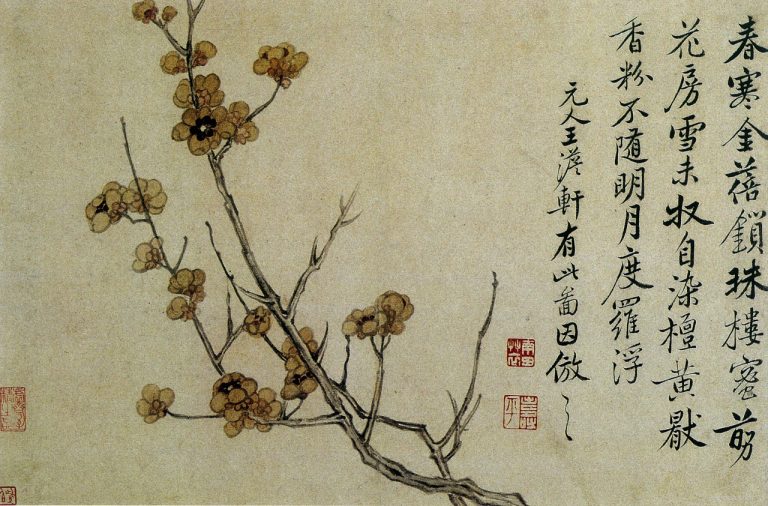 春寒金蓓鎖珠樓蜜剪
花房雪未收自染檀黃厭
香粉不随明月度羅浮
元人王澹軒有此啚因倣之